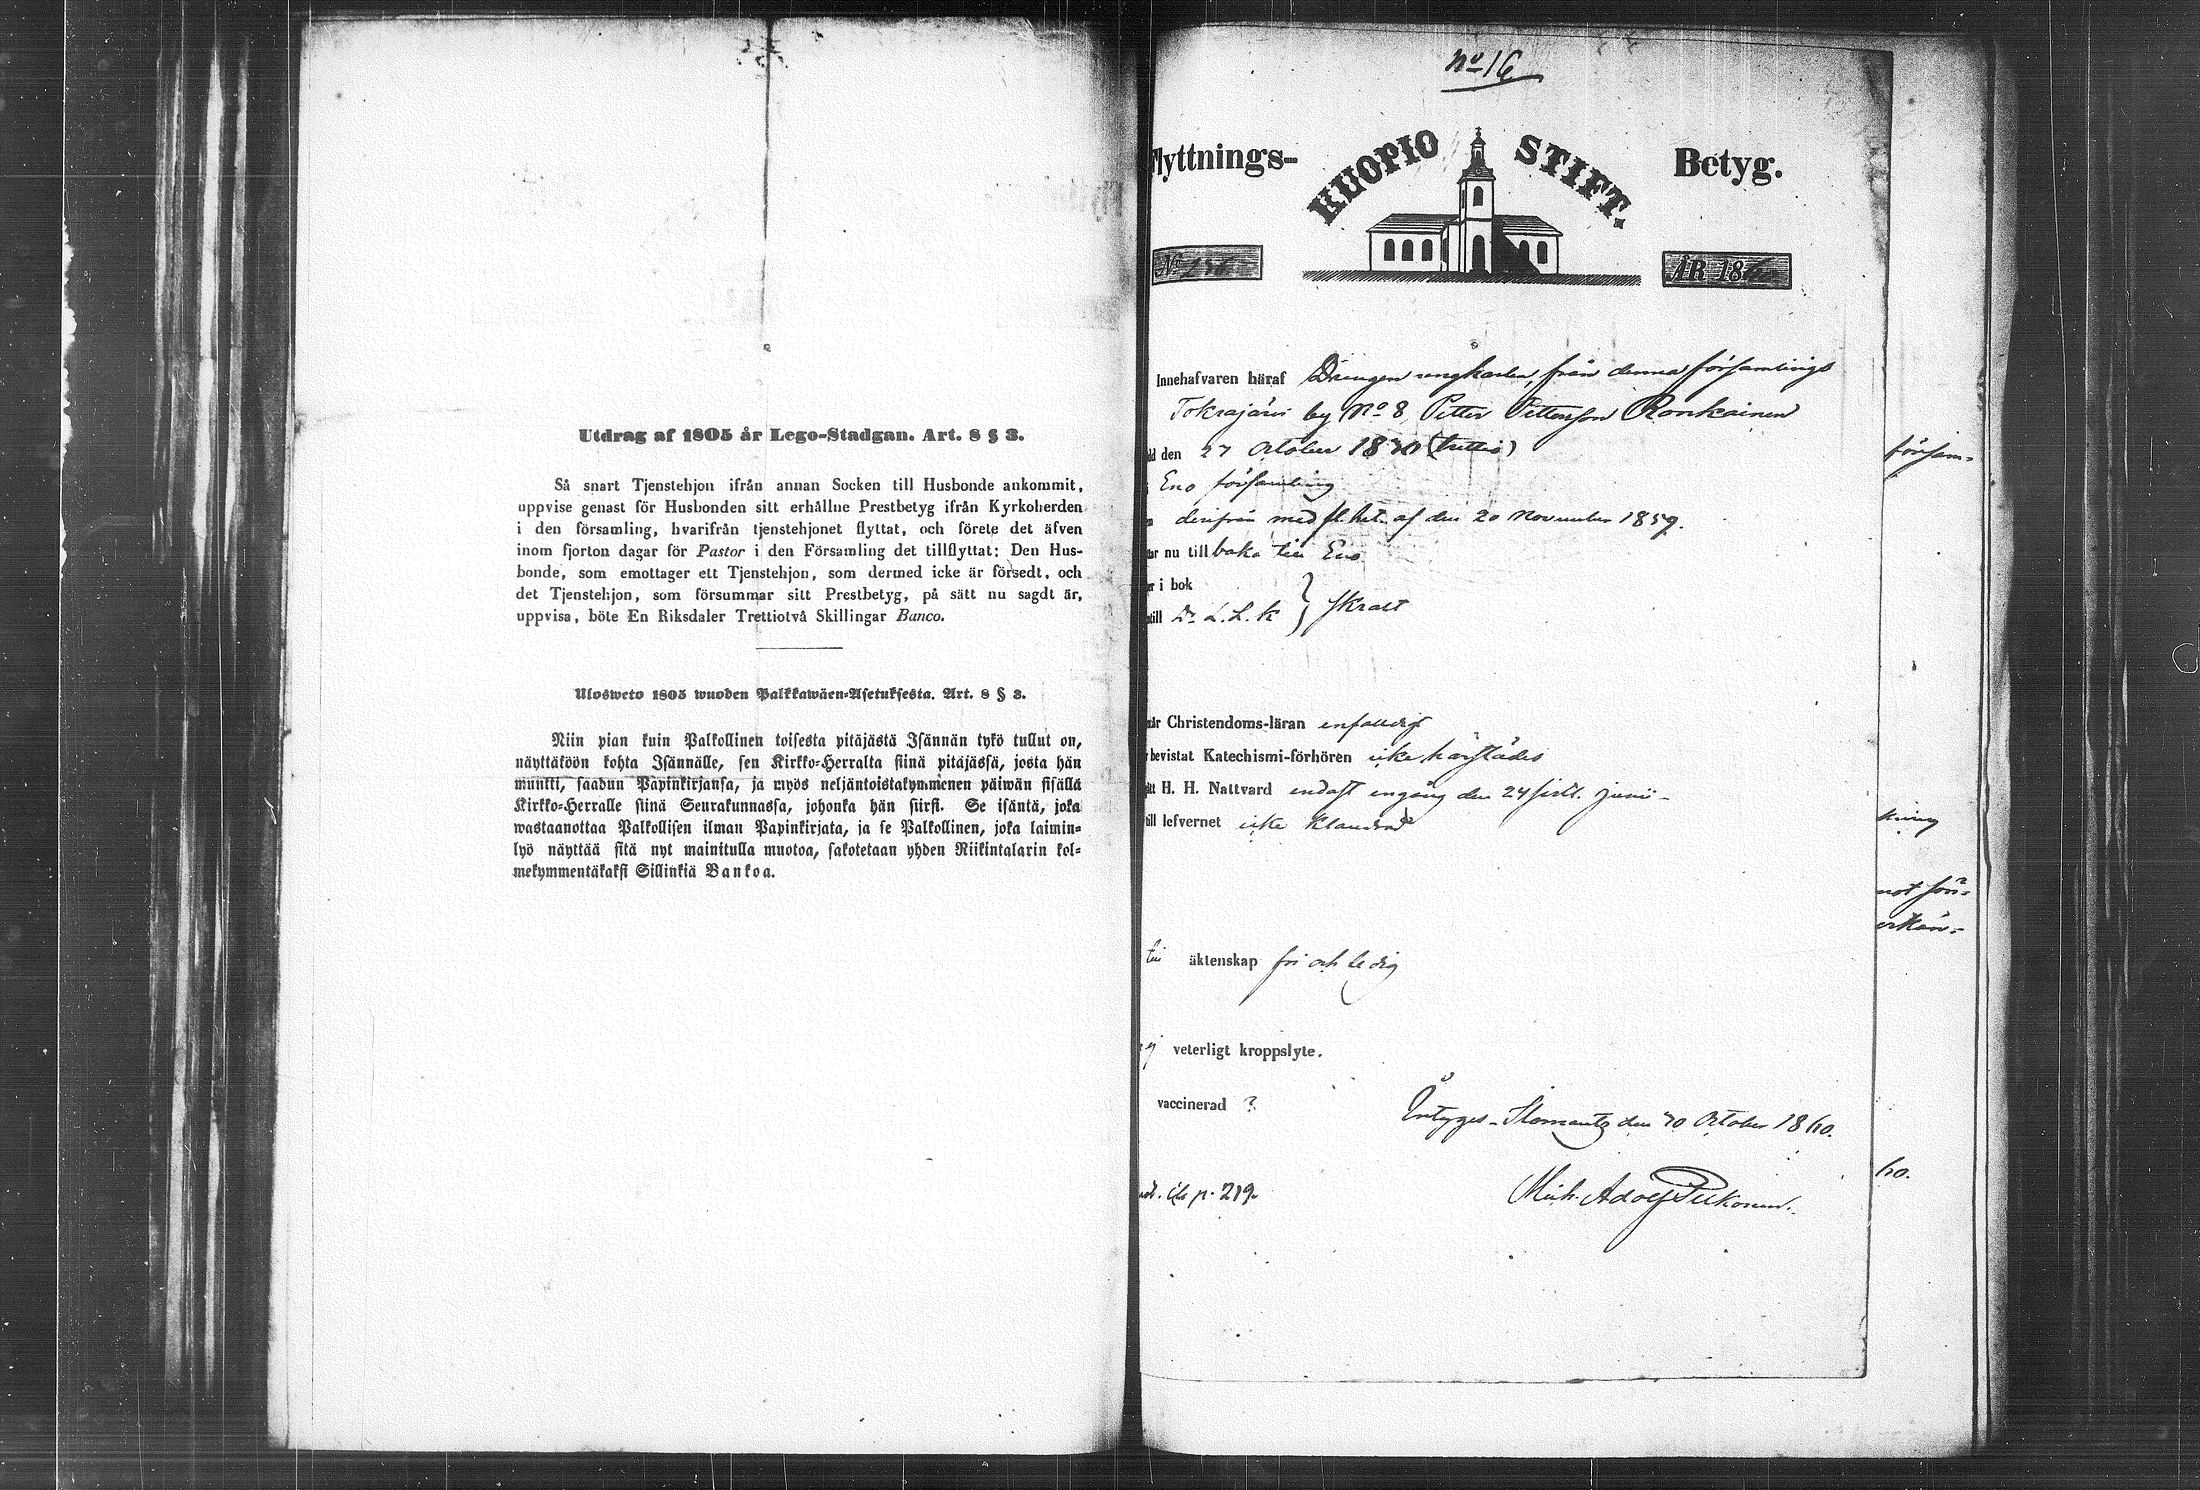 Utdrag af 1805 år Lego-Stadgan. Art. 8 § 3.
Så snart Tjenstehjon ifrån annan Socken till Husbonde ankommit,
uppvise genast för Husbonden sitt erhållne Prestbetyg ifrån Kyrkoherden
i den församling, hvarifrån tjenstehjonet flyttat, och förete det äfven
inom fjorton dagar för Pastor i den Församling det tillflyttat: Den Hus-
bonde, som emottager ett Tjenstehjon, som dermed icke är försedt, och
det Tjenstehjon, som försummar sitt Prestbetyg, på sätt nu sagdt är,
uppvisa, böte En Riksdaler Trettiotvå Skillingar Banco.
Ulosweto 1805 wuoden Palkkawäen-Asetuksesta. Art. 8 § 3.
Niin pian kuin Palkollinen toisesta pitäjästä Isännän tykö tullut on,
näyttäköön kohta Isännälle, sen Kirkko-Herralta siinä pitäjässä, josta hän
muutti, saadun Papinkirjansa, ja myös neljäntoistakymmenen päiwän sisällä
Kirkko-Herralle siinä Seurakunnassa, johonka hän siirsi. Se isäntä, joka
wastaanottaa Palkollisen ilman Papinkirjata, ja se Palkollinen, joka laimin-
lyö näyttää sitä nyt mainitulla muotoa, sakotetaan yhden Riikintalarin kol-
mekymmentäkaksi Sillinkiä Bankoa.
No 16
Flyttnings- KUOPIO STIFT. Betyg.
No ÅR 1860
Innehafvaren häraf Drängen ungkarlen, från denna församlings
Tokrajärvi by No 8, Petter Pettersson Ronkainen
dd den 27 October 1830 (trettio)
Eno församling
derifrån med fl. bet. af den 20 November 1859.
tar nu till baka till Eno
er i bok
till Dr L. L. k } skralt
står Christendoms-läran enfaldigt
bevistat Katechismi-förhören icke härstädes
H. H. Nattvard endast engång den 24 sistl. Juni
till lefvernet icke klandrad
till äktenskap fri och ledig
ej veterligt kroppslyte.
vaccinerad ?
Intygas Ilomants den 30 October 1860.
p. 219
Mich. Adolf Pelkonen.
försam-
kning
not för-
erkän-
60.